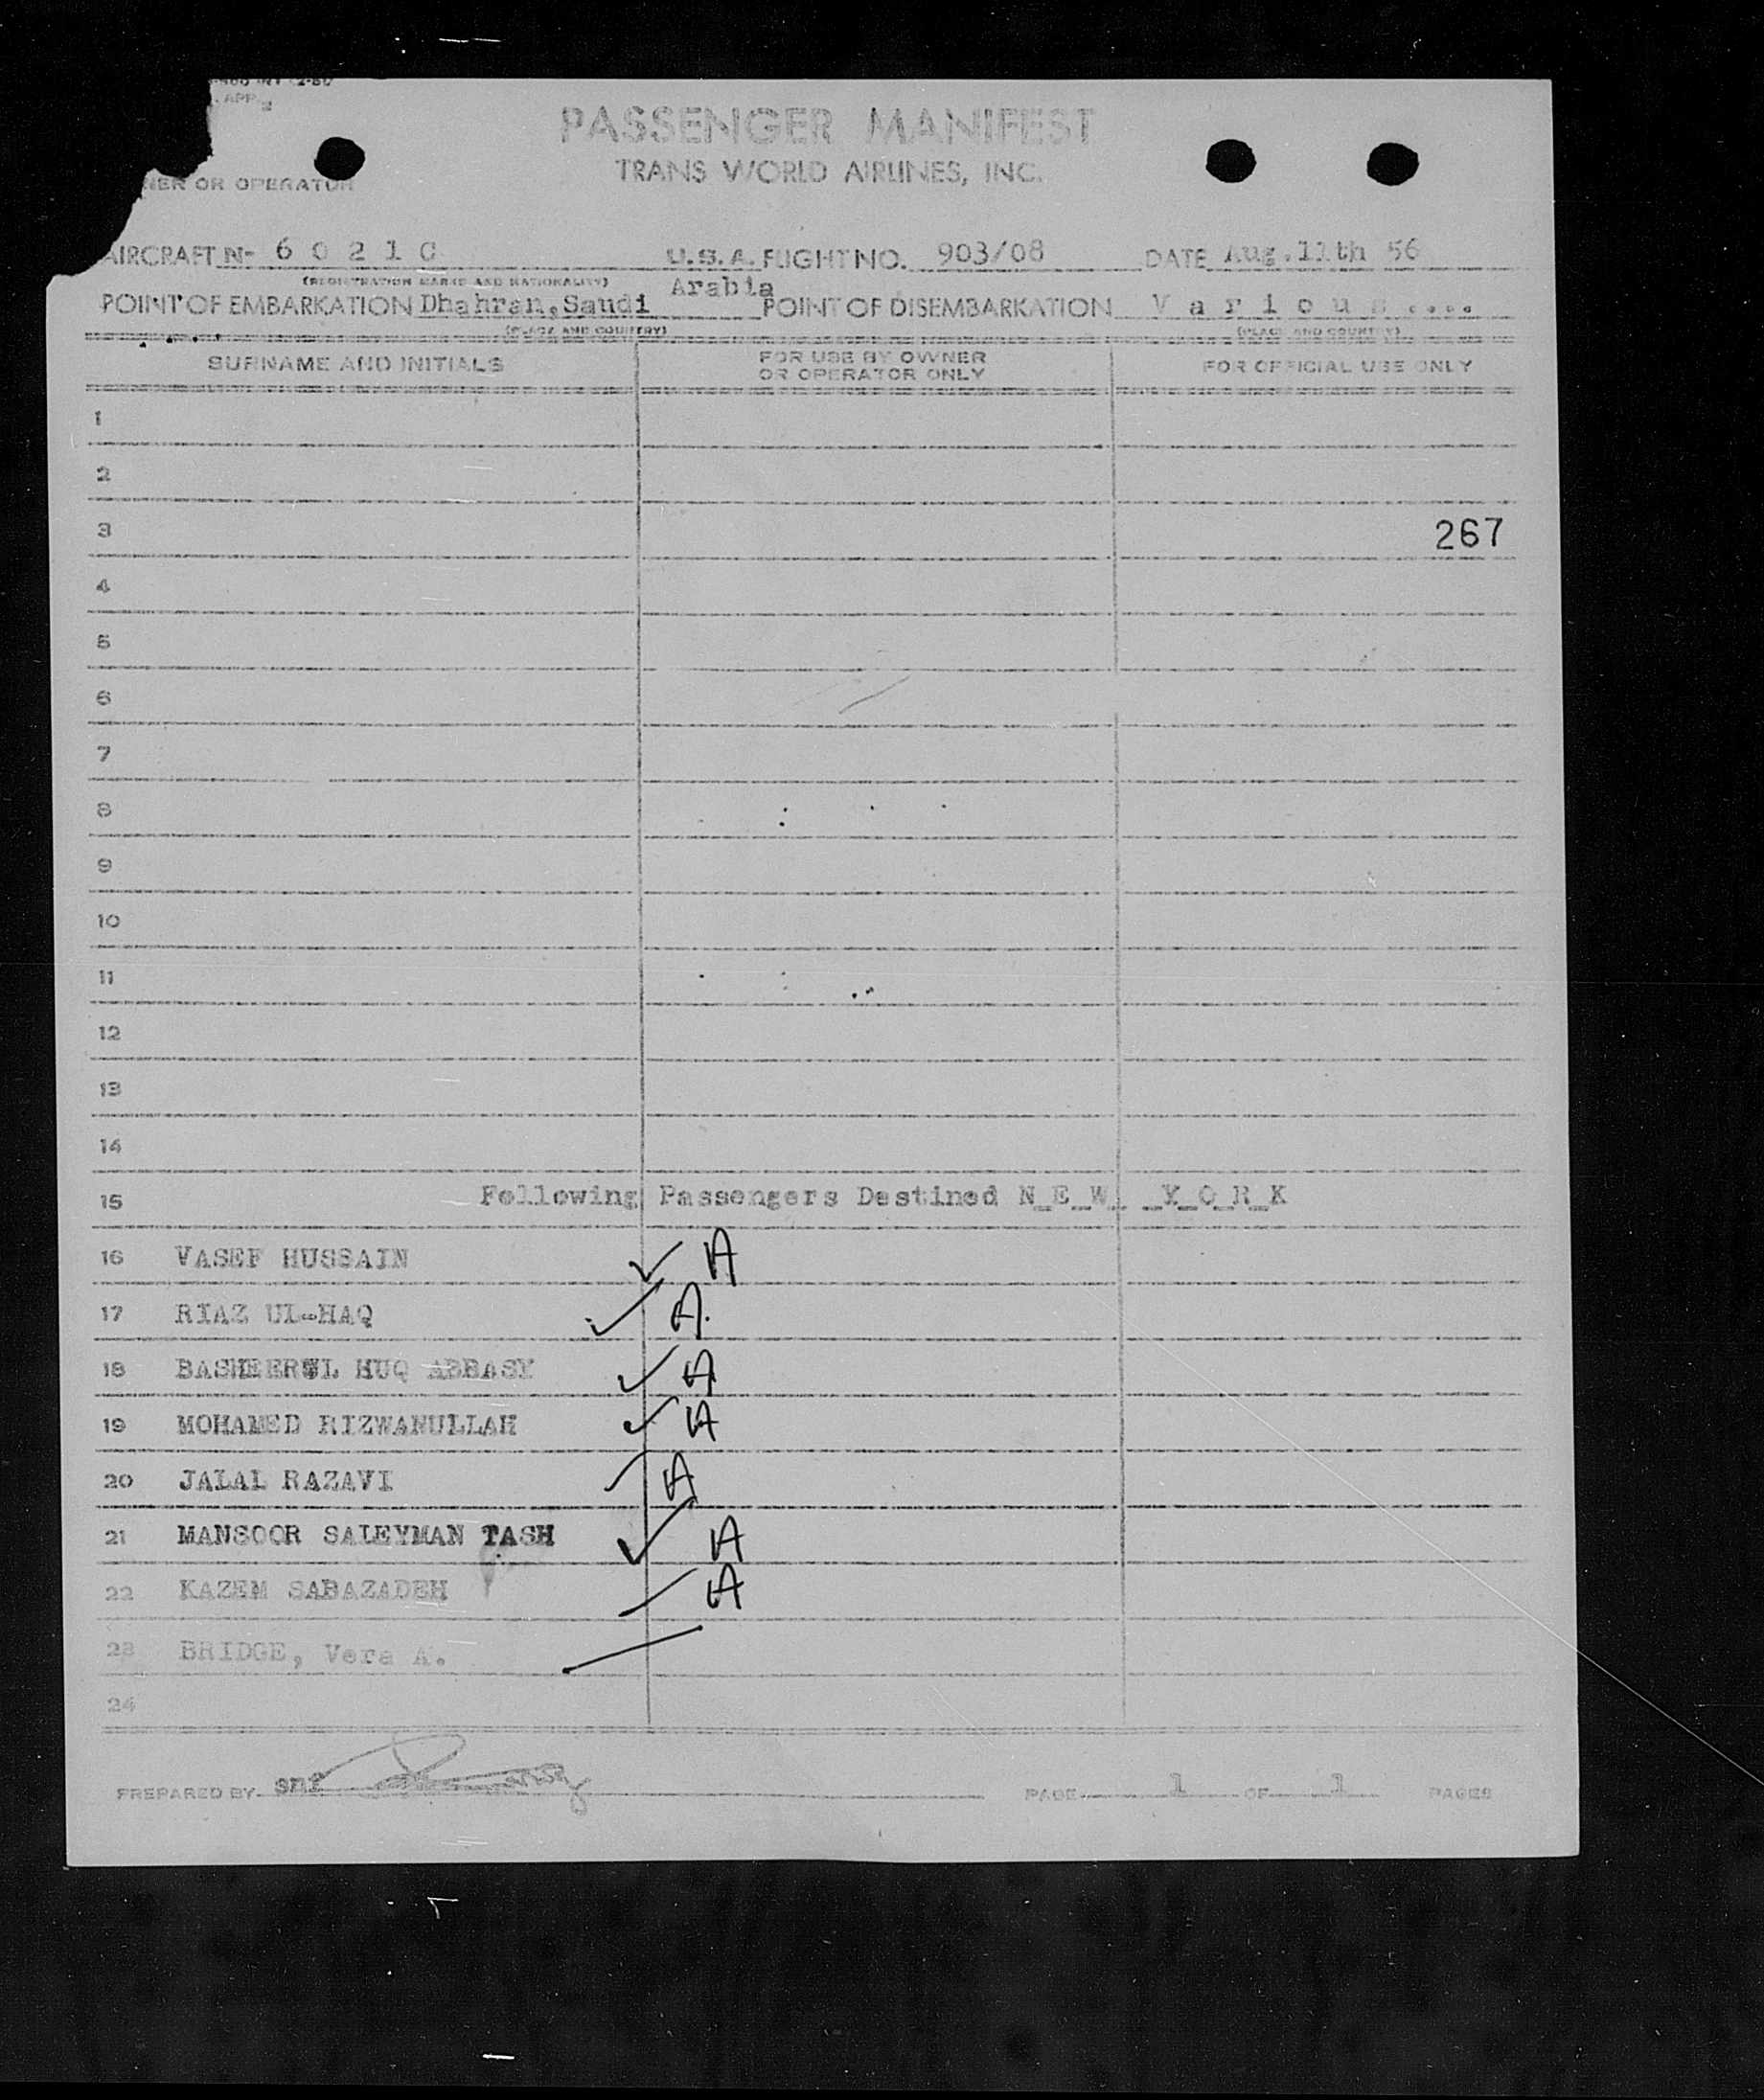 APP.
PASSENGER MANIFEST
TRANS WORLD AIRLINES, INC.
NER OR OPERATOR
AIRCRAFT N- 6 0 2 1 C U.S.A. FLIGHT NO. 903/08 DATE Aug.11th 56
(REGISTRATION MARKS AND NATIONALITY)
POINT OF EMBARKATION Dhahran, Saudi Arabia POINT OF DISEMBARKATION V a r i o u s ....
(PLACE AND COUNTRY) (PLACE AND COUNTRY)
SURNAME AND INITIALS FOR USE BY OWNER OR OPERATOR ONLY FOR OFFICIAL USE ONLY
1
2
3 267
4
5
6
7
8
9
10
11
12
13
14
15 Following Passengers Destined N_E_W_ _Y_O_R_K
16 VASEF HUSSAIN ✓ A
17 RIAZ UL-HAQ ✓ A.
18 BASHEERUL HUQ ABBASY ✓ A
19 MOHAMED RIZWANULLAH ✓ A
20 JALAL RAZAVI A
21 MANSOOR SALEYMAN TASH ✓ A
22 KAZEM SABAZADEH A
23 BRIDGE, Vera A.
24
PREPARED BY PAGE 1 OF 1 PAGES